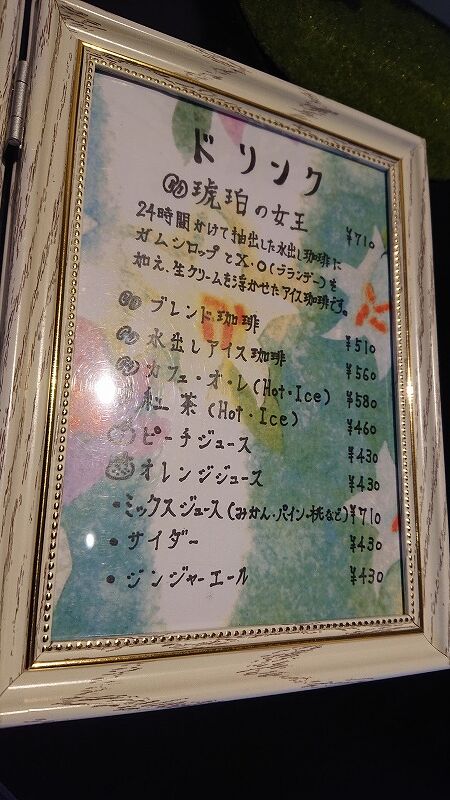 ドリンク
琥珀の女王 ¥710
24時間かけて抽出した水出し珈琲に
ガムシロップとX・O(ブランデー)を
加え、生クリームを浮かせたアイス珈琲です。
ブレンド珈琲 ¥510
水出しアイス珈琲 ¥560
カフェ・オ・レ(Hot・Ice) ¥580
紅茶(Hot・Ice) ¥460
ピーチジュース ¥430
オレンジジュース ¥430
・ミックスジュース(みかん・パイン・桃など) ¥710
・サイダー ¥430
・ジンジャーエール ¥430